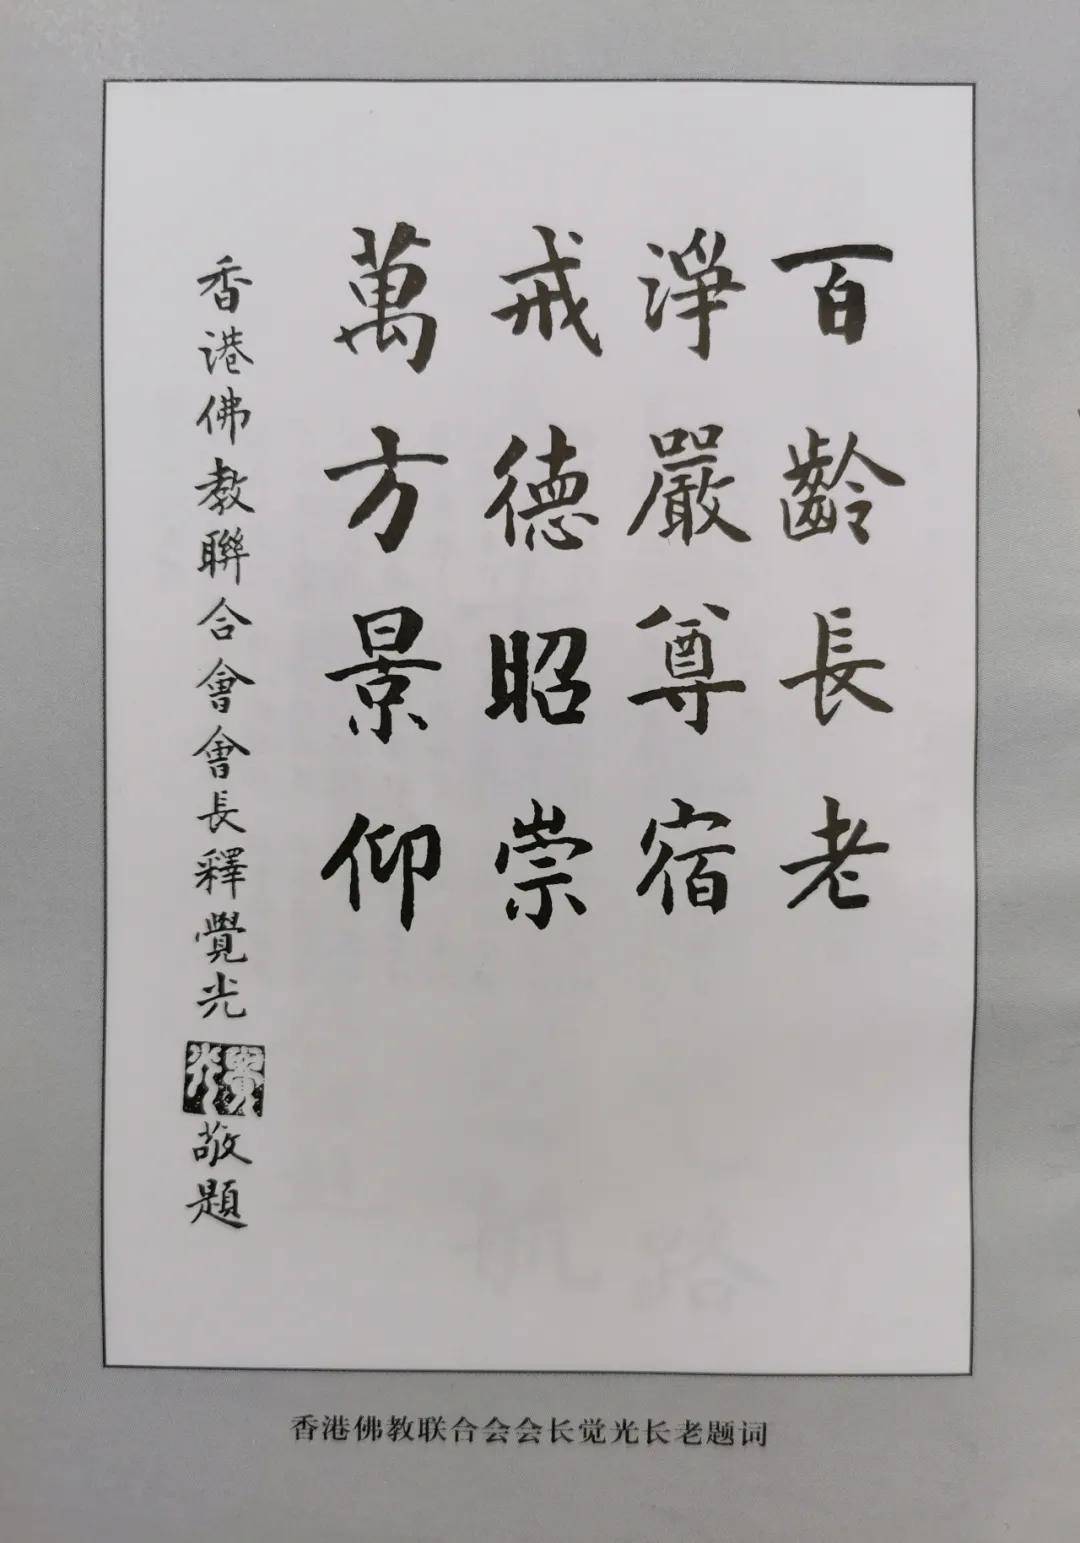 百齡長老
淨嚴尊宿
戒德昭崇
萬方景仰
香港佛教聯合會會長釋覺光
敬題
香港佛教联合会会长觉光长老题词